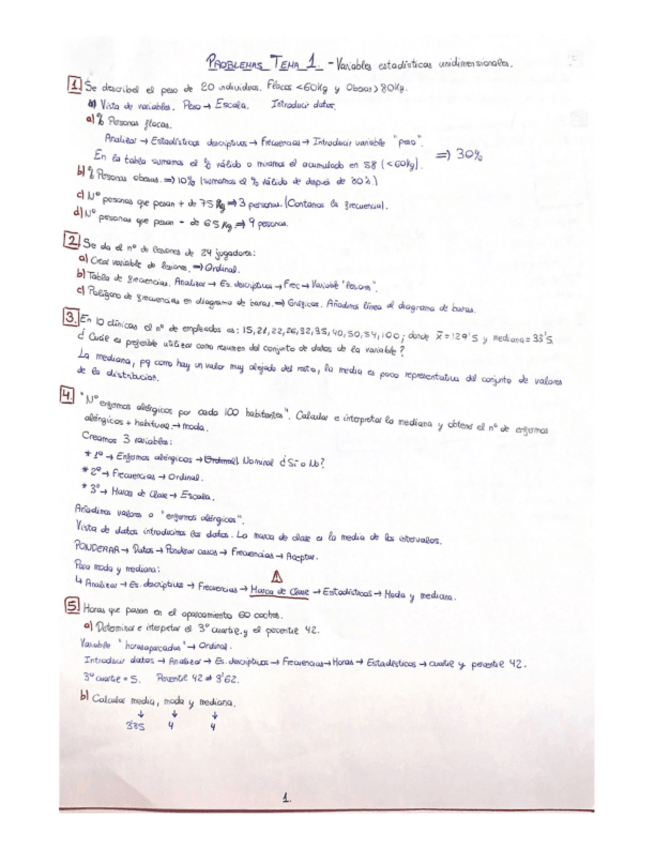 PROBLEMAS TEMA 1. - Variables estadísticas unidimensionales.
1. Se describe el peso de 20 individuos. Flacos < 60kg y Obesos > 80kg.
Vista de variables. Peso → Escala. Introducir datos.
a) % Personas flacas.
Analizar → Estadísticos descriptivos → Frecuencias → Introducir variable "peso".
En la tabla sumamos el % válido o miramos el acumulado en 58 (<60kg). ⇒ 30%
b) % Personas obesas. ⇒ 10% (sumamos el % válido de después de 80%)
c) Nº personas que pesan + de 75 kg ⇒ 3 personas. (Contamos la frecuencia).
d) Nº personas que pesan - de 65 kg. ⇒ 9 personas.
2. Se da el nº de lesiones de 24 jugadores:
a) Crear variable de lesiones. ⇒ Ordinal.
b) Tabla de frecuencias. Analizar → Es. descriptivos → Frec → Variable "lesiones".
c) Polígono de frecuencias en diagrama de barras. ⇒ Gráficos. Añadimos línea al diagrama de barras.
3. En 10 clínicas el nº de empleados es: 15, 21, 22, 26, 32, 35, 40, 50, 54, 100; donde x̄ = 129'5 y mediana = 33'5.
¿Cuál es preferible utilizar como resumen del conjunto de datos de la variable?
La mediana, pq como hay un valor muy alejado del resto, la media es poco representativa del conjunto de valores
de la distribución.
4. "Nº enfermos alérgicos por cada 100 habitantes". Calcular e interpretar la mediana y obtener el nº de enfermos
alérgicos + habitual → moda.
Creamos 3 variables:
* 1º → Enfermos alérgicos → Ordinal Nominal ¿Sí o No?
* 2º → Frecuencias → Ordinal.
* 3º → Marcas de Clase → Escala.
Añadimos valores a "enfermos alérgicos".
Vista de datos introducimos los datos. La marca de clase es la media de los intervalos.
PONDERAR → Datos → Ponderar casos → Frecuencias → Aceptar.
Para moda y mediana:
↳ Analizar → Es. descriptivos → Frecuencias → Marca de Clase → Estadísticos → Moda y mediana.
5. Horas que pasan en el aparcamiento 60 coches.
a) Determinar e interpretar el 3º cuartil y el percentil 42.
Variable "horasaparcadas" → Ordinal.
Introducir datos → Analizar → Es. descriptivos → Frecuencias → Horas → Estadísticos → cuartil y percentil 42.
3º cuartil = 5. Percentil 42 = 3'62.
b) Calcular media, moda y mediana.
↓ ↓ ↓
3'85 4 4
1.